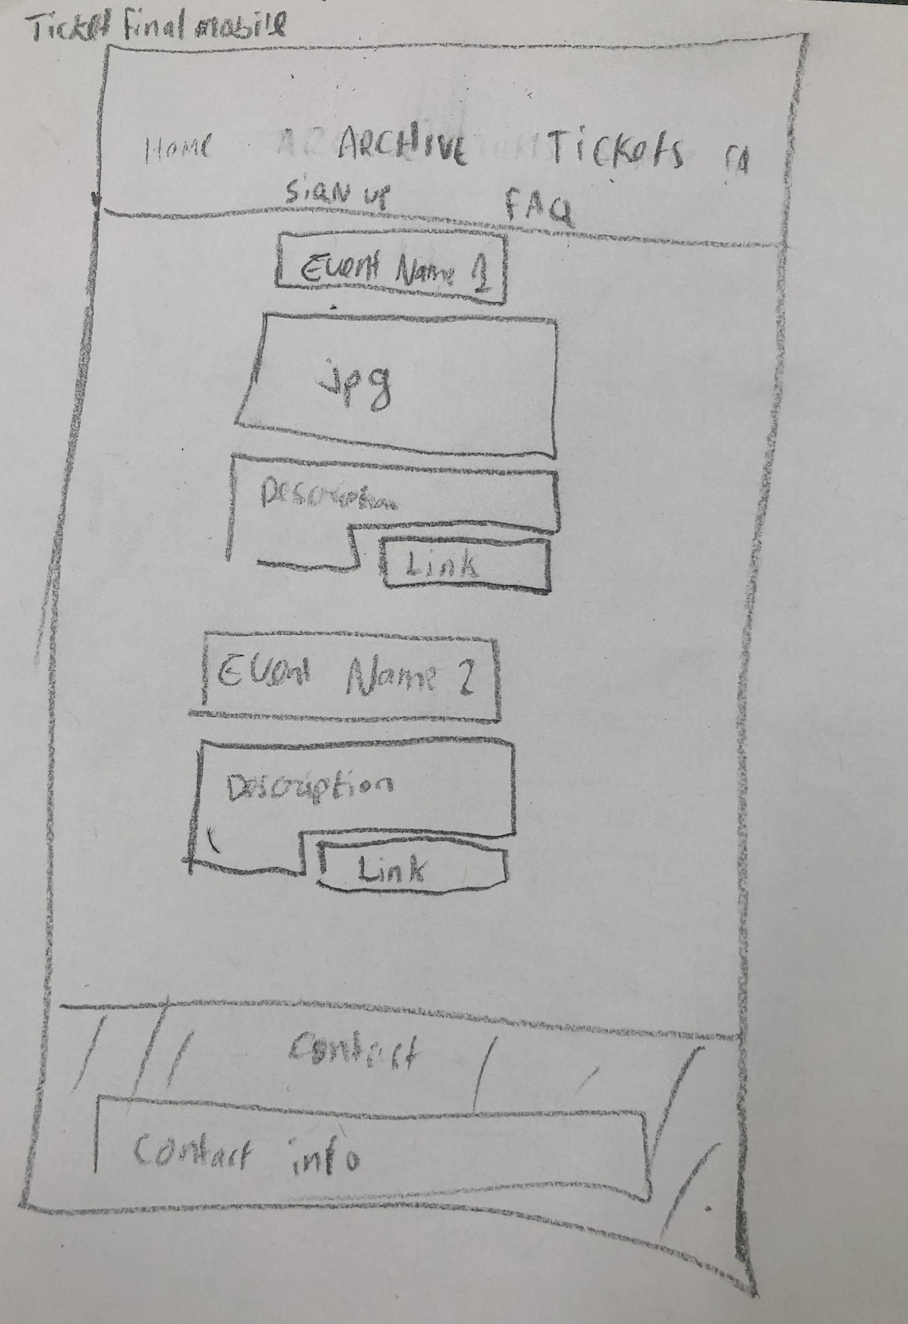 Ticket Final mobile
Home ARCHIVE Tickets FA
Sign up FAQ
Event Name 1
jpg
Description
Link
Event Name 2
Description
Link
Contact
Contact info